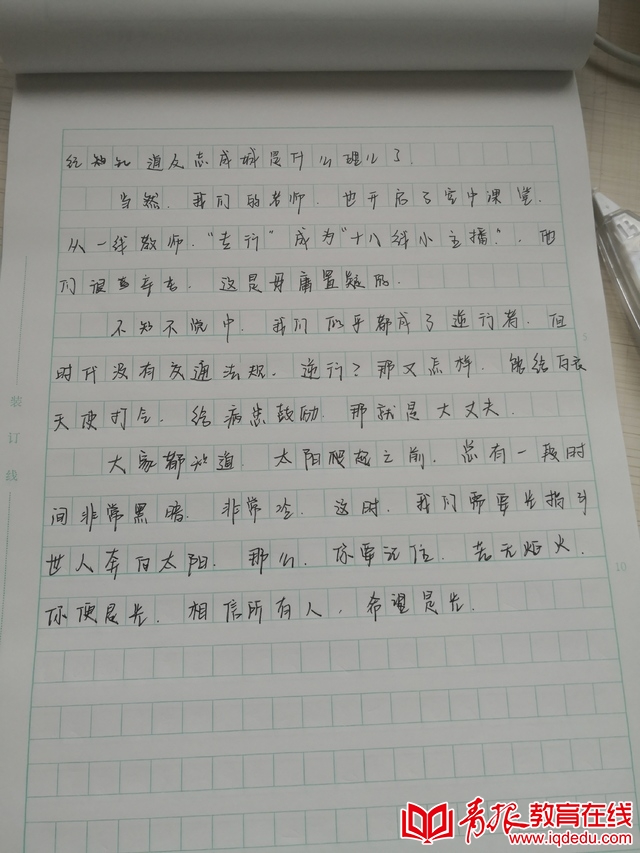 经知礼道众志成城是什么理儿了.
当然.我们的老师.也开启了空中课堂.
从一线教师."专行"成为"十八线小主播".他
们很辛苦.这是毋庸置疑的.
不知不觉中.我们似乎都成了逆行者.但
时代没有交通法规.逆行?那又怎样.能给白衣
天使打气.给病患鼓励.那就是大丈夫.
大家都知道.太阳爬起之前.总有一段时
间非常黑暗.非常冷.这时.我们需要光指引
世人奔向太阳.那么.你要记住.若无炬火.
你便是光.相信所有人,希望是光.
装订线
5
10
青报教育在线
www.iqdedu.com